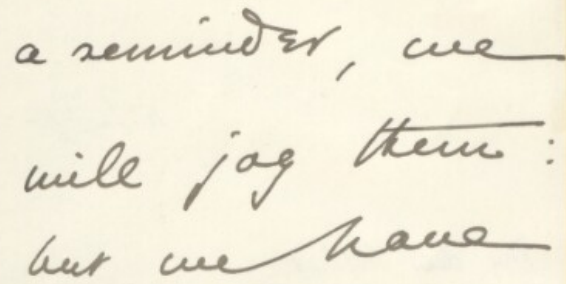 a reminder, we
will jog them:
but we have